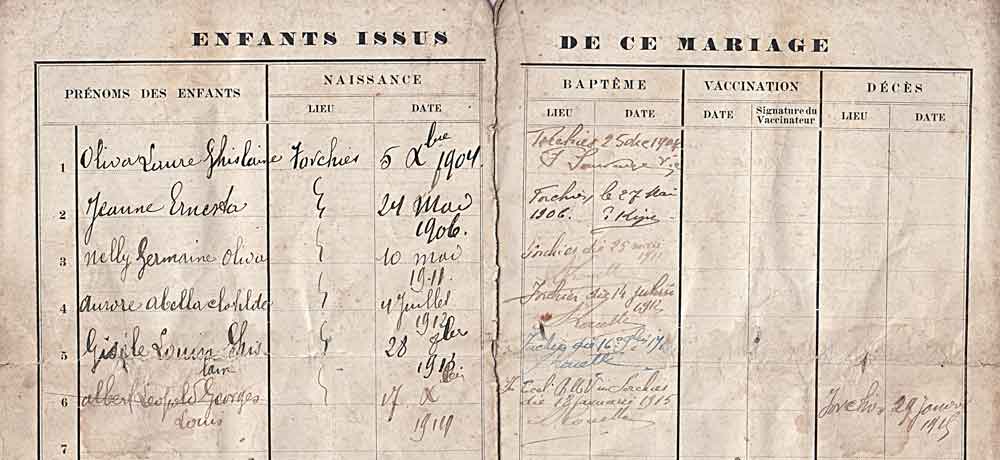 ENFANTS ISSUS DE CE MARIAGE
PRÉNOMS DES ENFANTS NAISSANCE BAPTÊME VACCINATION DÉCÈS
LIEU DATE LIEU DATE DATE Signature du Vaccinateur LIEU DATE
1 Oliva Laure Ghislaine Forchies 5 Xbre 1904. Forchies 25 dec 1904
2 Jeanne Ernesta 24 Mai 1906. Forchies, le 27 Mai 1906.
3 Nelly Germaine Oliva 10 mai 1911. Forchies die 25 maii 1911
4 aurore abella clothilde 4 Juillet 1912 Forchies die 14 julii 1912
5 Gisèle Louisa Ghislaine 28 1913 die 16
6 albert Léopold Georges Louis 17 X 1914 Forchies die 18 januarii 1915 Forchies 29 Janvier 1915
7